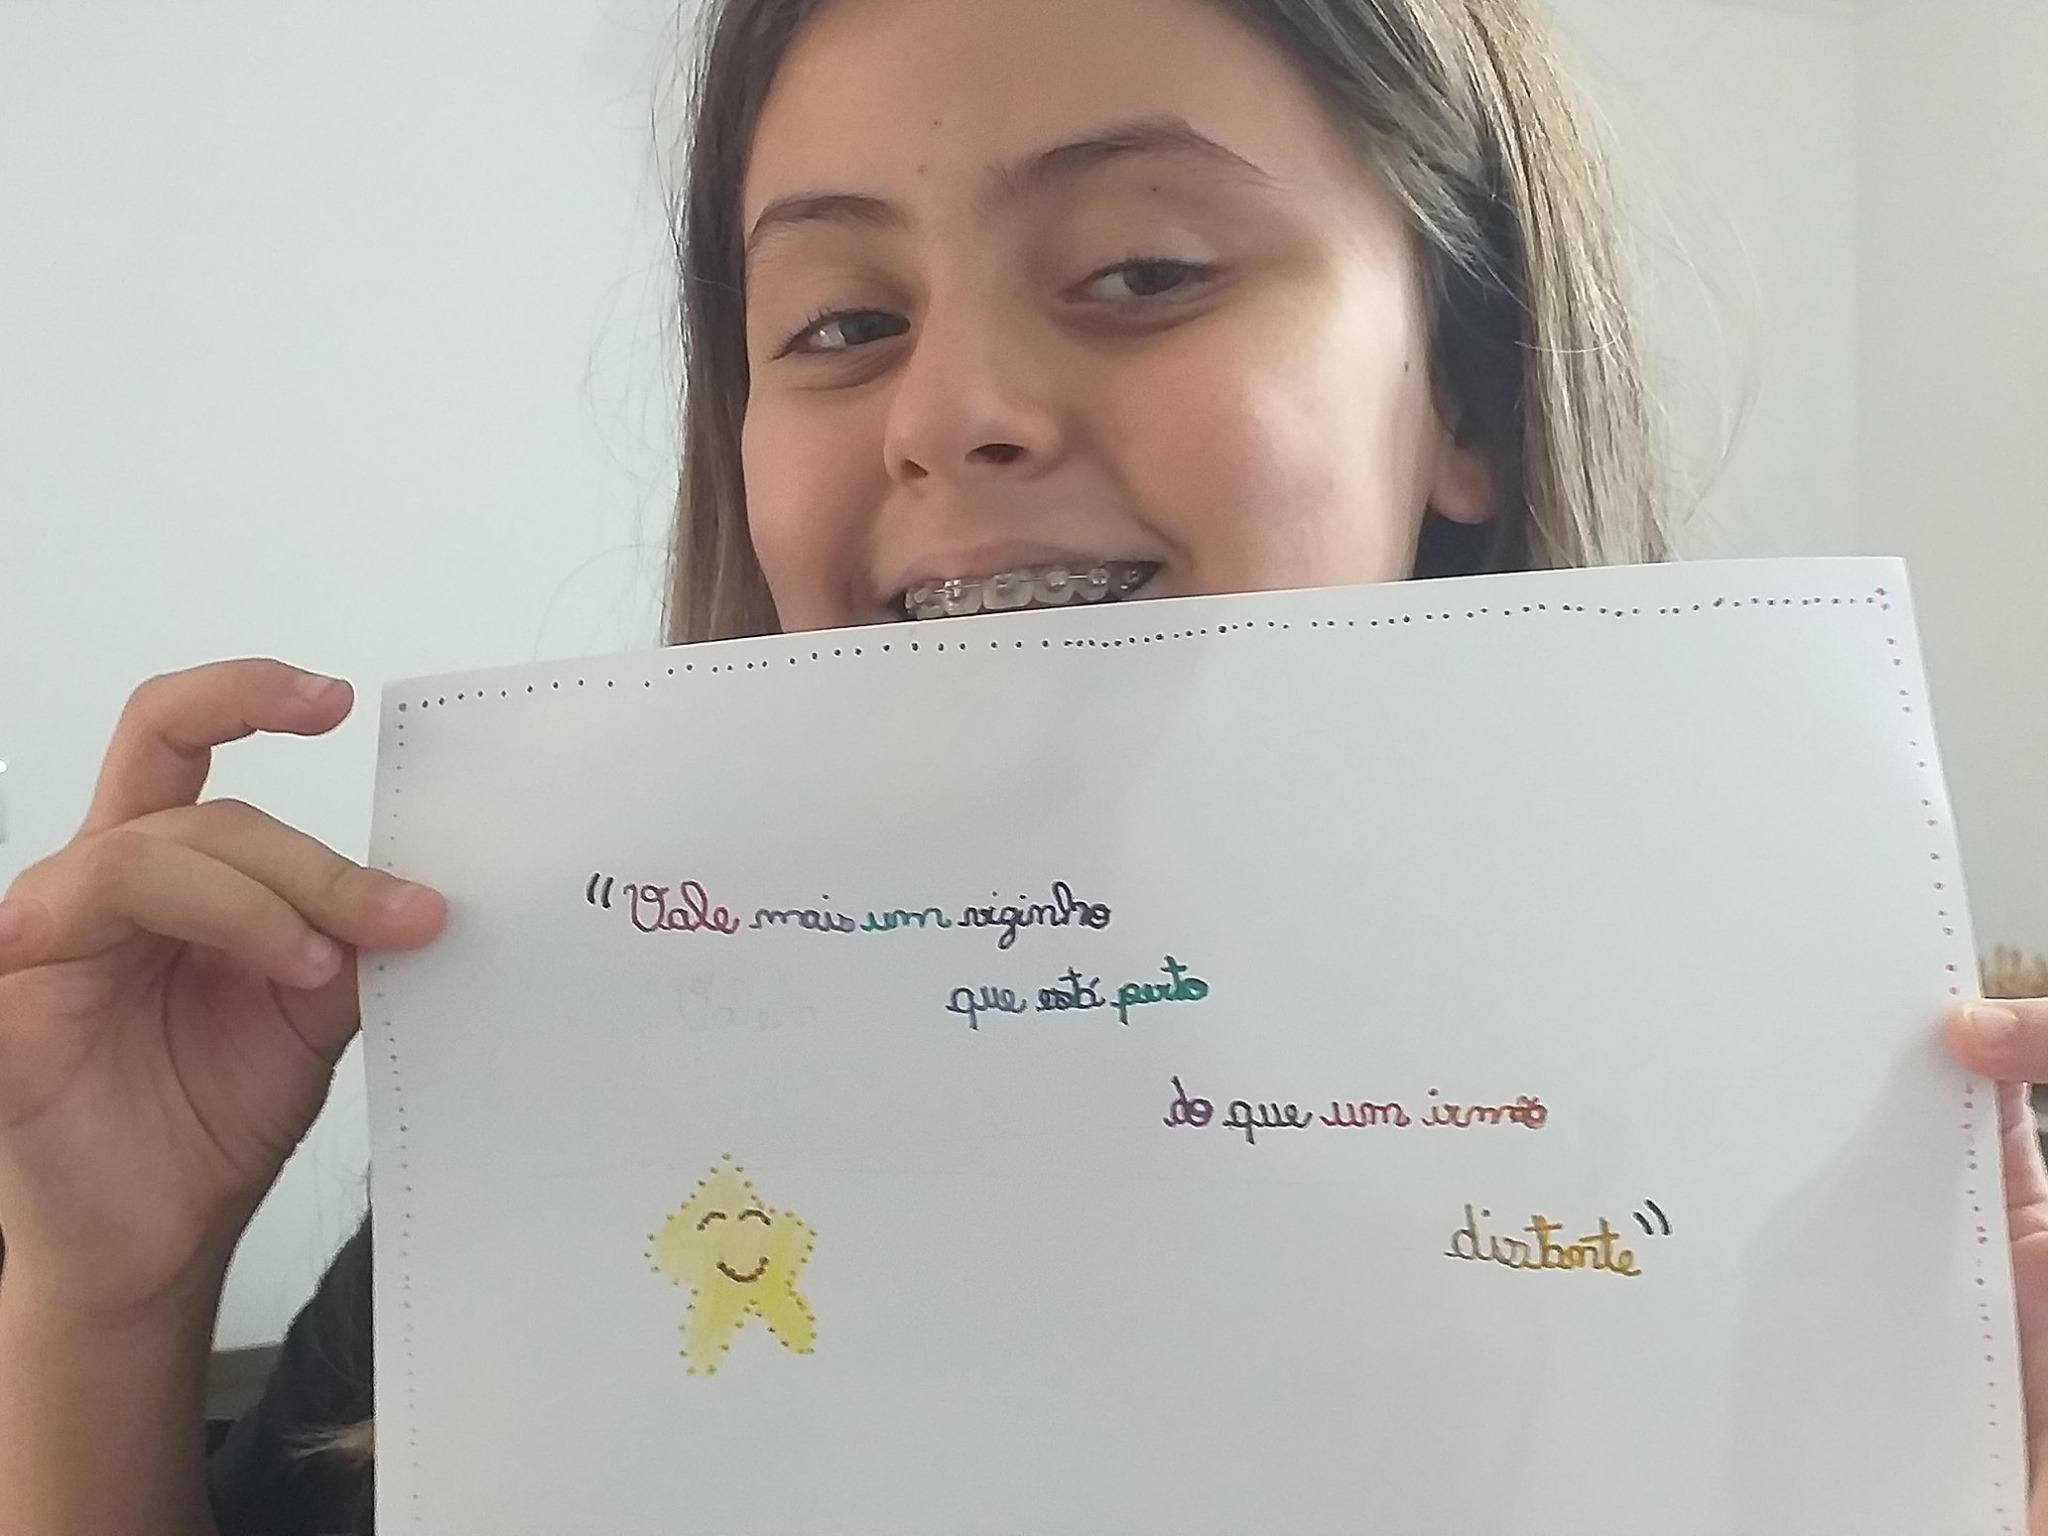 "Vale mais um viginho
que está perto
do que um irmão
distante"